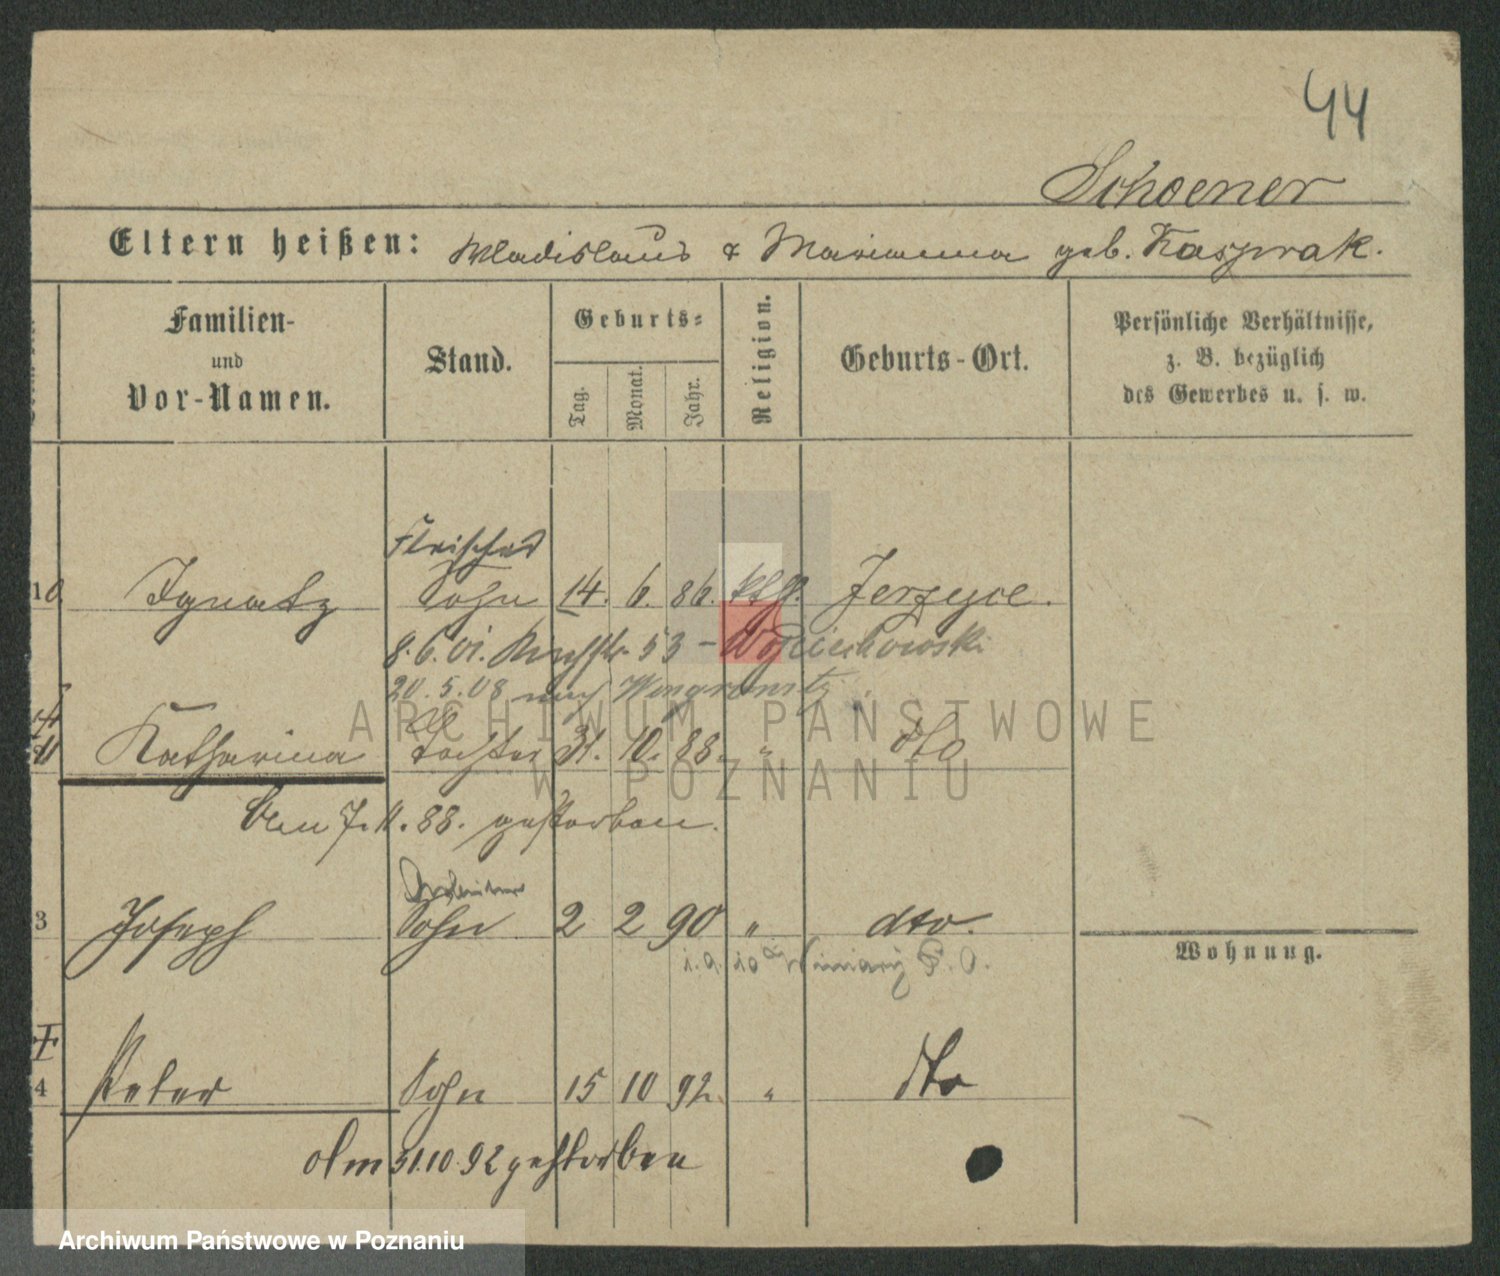 44
Schoener
Eltern heißen: Wladislaus & Marianna geb. Kasprak.
Familien- und Vor-Namen.
Stand.
Geburts-
Tag. Monat. Jahr.
Religion.
Geburts-Ort.
Persönliche Verhältnisse, z. B. bezüglich des Gewerbes u. s. w.
Fleischer
10 Ignatz Sohn 14. 6. 86. kth. Jerzyce.
8.6.01. 53 - Wojciechowski
20.5.08 nach Wongrowitz
ARCHIWUM PAŃSTWOWE
Katharina Tochter 31. 10. 88. " dto
W POZNANIU
Am 7.11.88. gestorben.
3 Joseph Sohn 2 2 90 " dto.
Wohnung.
4 Peter Sohn 15 10 92. " dto
Am 31.10.92 gestorben
Archiwum Państwowe w Poznaniu